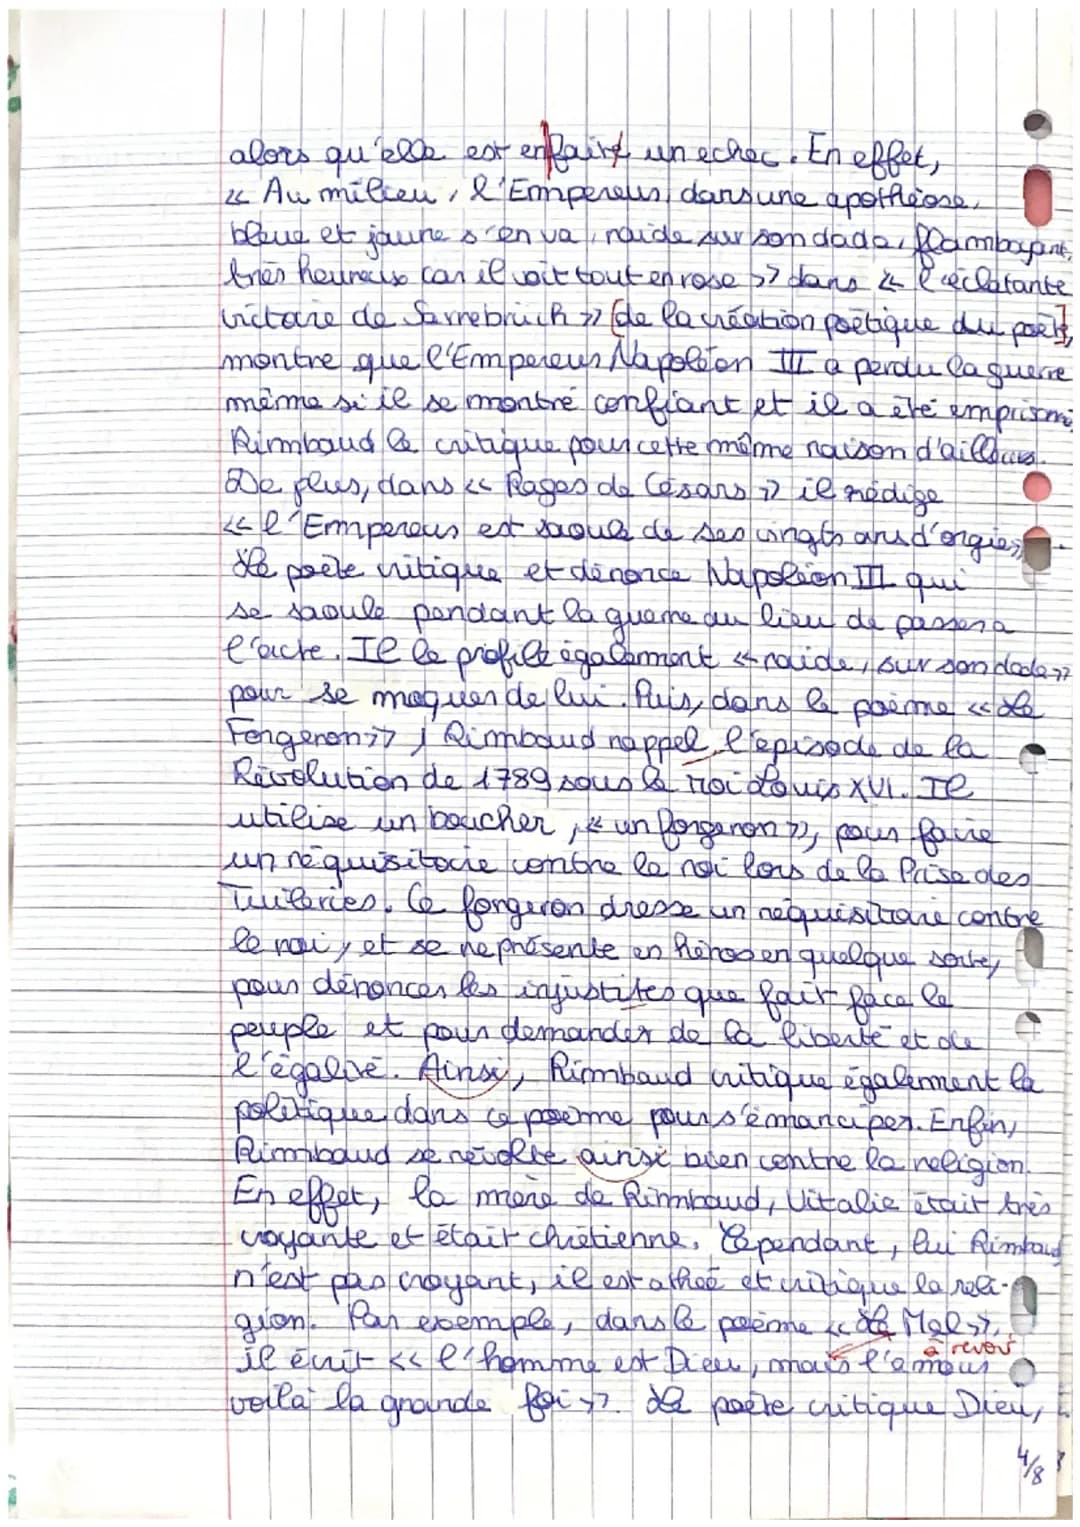 alors qu'elle est en faite un echec. En effet,
« Au milieu, l'Empereur, dans une apothéose,
bleue et jaune s'en va, raide sur son dada, flamboyant,
très heureux car il voit tout en rose » dans « l'éclatante
victoire de Sarrebrück » [de la création poëtique du poète],
montre que l'Empereur Napoléon III a perdu la guerre
même si il se montre confiant et il a été emprisonné
Rimbaud le critique pour cette même raison d'ailleurs.
De plus, dans « Rages de Césars » il rédige
« l'Empereur est saoule de ses vingts ans d'orgies »,
Le poète critique et dénonce Napoléon III qui
se saoule pendant la guerre au lieu de passer a
l'acte. Il le profile également « raide, sur son dada »
pour se moquer de lui. Puis, dans le poème « Le
Forgeron », Rimbaud rappel l'épisode de la
Révolution de 1789 sous le roi Louis XVI. Il
utilise un boucher, « un forgeron », pour faire
un réquisitoire contre le roi lors de la Prise des
Tuileries. Ce forgeron dresse un réquisitoire contre
le roi, et se représente en héros en quelque sorte,
pour dénoncer les injustites que fait face le
peuple et pour demander de la liberté et de
l'égalité. Ainsi, Rimbaud critique également la
politique dans ce poème pour s'émanciper. Enfin,
Rimbaud se révolte ainsi bien contre la religion.
En effet, la mère de Rimbaud, Vitalie était très
croyante et était chrétienne. Cependant, lui Rimbaud
n'est pas croyant, il est atheé et critique la reli-
gion. Par exemple, dans le poème « Le Mal »,
à revoir
il écrit « l'homme est Dieu, mais l'amour
voilà la grande foi ». Le poète critique Dieu,
4/8